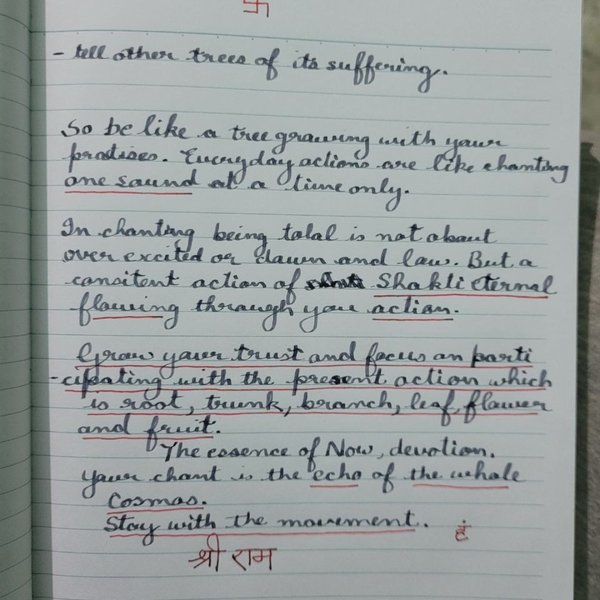 卐
- tell other trees of its suffering.
So be like a tree growing with your
pratises. Everyday actions are like chanting
one sound at a time only.
In chanting being total is not about
over excited or dawn and law. But a
consitent action of Shakti eternal
flowing through your action.
Grow your trust and focus on parti
-cipating with the present action which
is root, trunk, branch, leaf, flower
and fruit.
The essence of Now, devotion.
Your chant is the echo of the whole
Cosmos.
Stay with the movement. हं
श्री राम